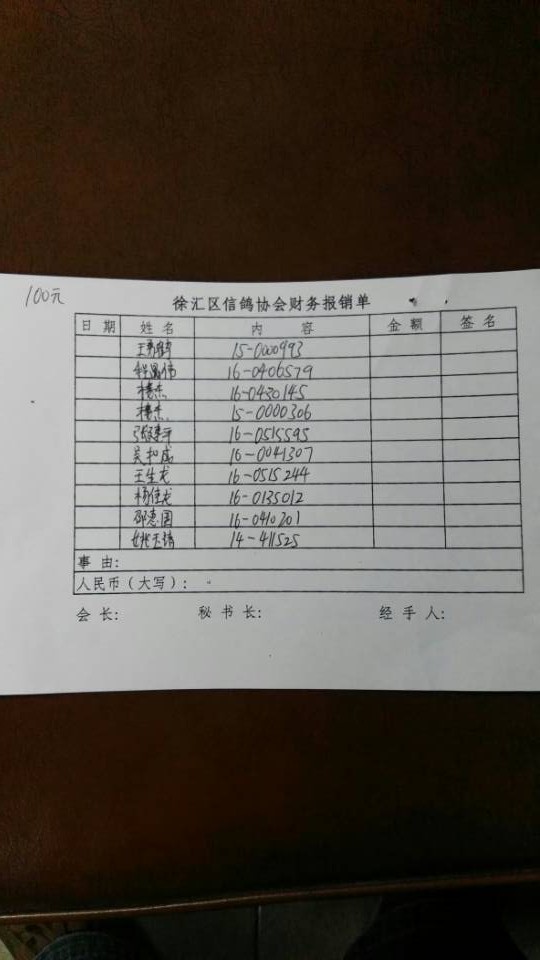 100元
徐汇区信鸽协会财务报销单
日 期 姓 名 内 容 金 额 签 名
15-0000993
16-0406579
楼杰 16-0430145
楼杰 15-0000306
16-0515595
16-0041307
王生龙 16-0515244
杨佳龙 16-0135012
邵惠国 16-0410201
14-411525
事 由:
人民币(大写):
会 长: 秘 书 长: 经 手 人: